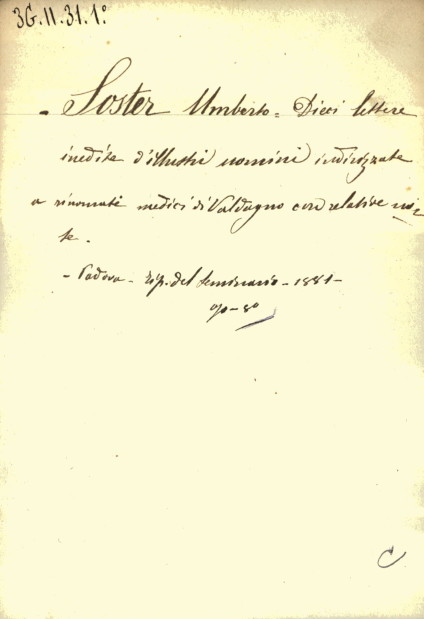 3G.11.31.1°
- Soster Umberto = Dieci lettere
inedite d'illustri uomini indirizzate
a rinomati medici di Valdagno con relative no=
te.
- Padova - Tip. del Seminario - 1881 -
8°
C